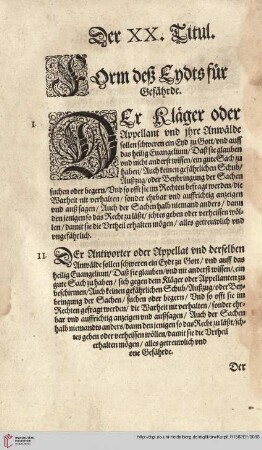 Der XX. Titul.
Form deß Eydts für
Gefährde.
I.
DEr Kläger oder
Appellant vnd jhre Anwälde
sollen schweren ein Eyd zu Gott/ vnd auff
das heilig Euangelium/ Daß sie glauben
vnd nicht anderst wissen/ ein gute Sach zu
haben/ Auch keinen gefährlichen Schub/
Außzug/ oder Beybringung der Sachen
suchen oder begern/ Vnd so offt sie im Rechten befragt werden/ die
Warheit nit verhalten/ sonder ehrbar vnd auffrichtig anzeigen
vnd außsagen/ Auch der Sachen halb niemand anders/ dann
dem jenigen so das Recht zu läßt/ ichtes geben oder verheissen wöl-
len/ damit sie die Vrtheil erhalten mögen/ alles getrewlich vnd
vngefährlich.
II.
DEr Antworter oder Appellat vnd derselben
Anwälde sollen schweren ein Eyd zu Gott/ vnd auff das
heilig Euangelium/ Daß sie glauben/ vnd nit anderst wissen/ ein
gute Sach zu haben/ sich gegen dem Kläger oder Appellanten zu
beschirmen/ Auch keinen gefährlichen Schub/ Außzug/ oder Bey-
bringung der Sachen/ suchen oder begern/ Vnd so offt sie im
Rechten gefragt werden/ die Warheit nit verhalten/ sonder ehr-
bar vnd auffrichtig anzeigen vnd außsagen/ Auch der Sachen
halb niemands anders/ dann den jenigen so das Recht zu läßt/ ich-
tes geben oder verheissen wöllen/ damit sie die Vrtheil
erhalten mögen/ alles getrewlich vnd
one Gefährde.
Der